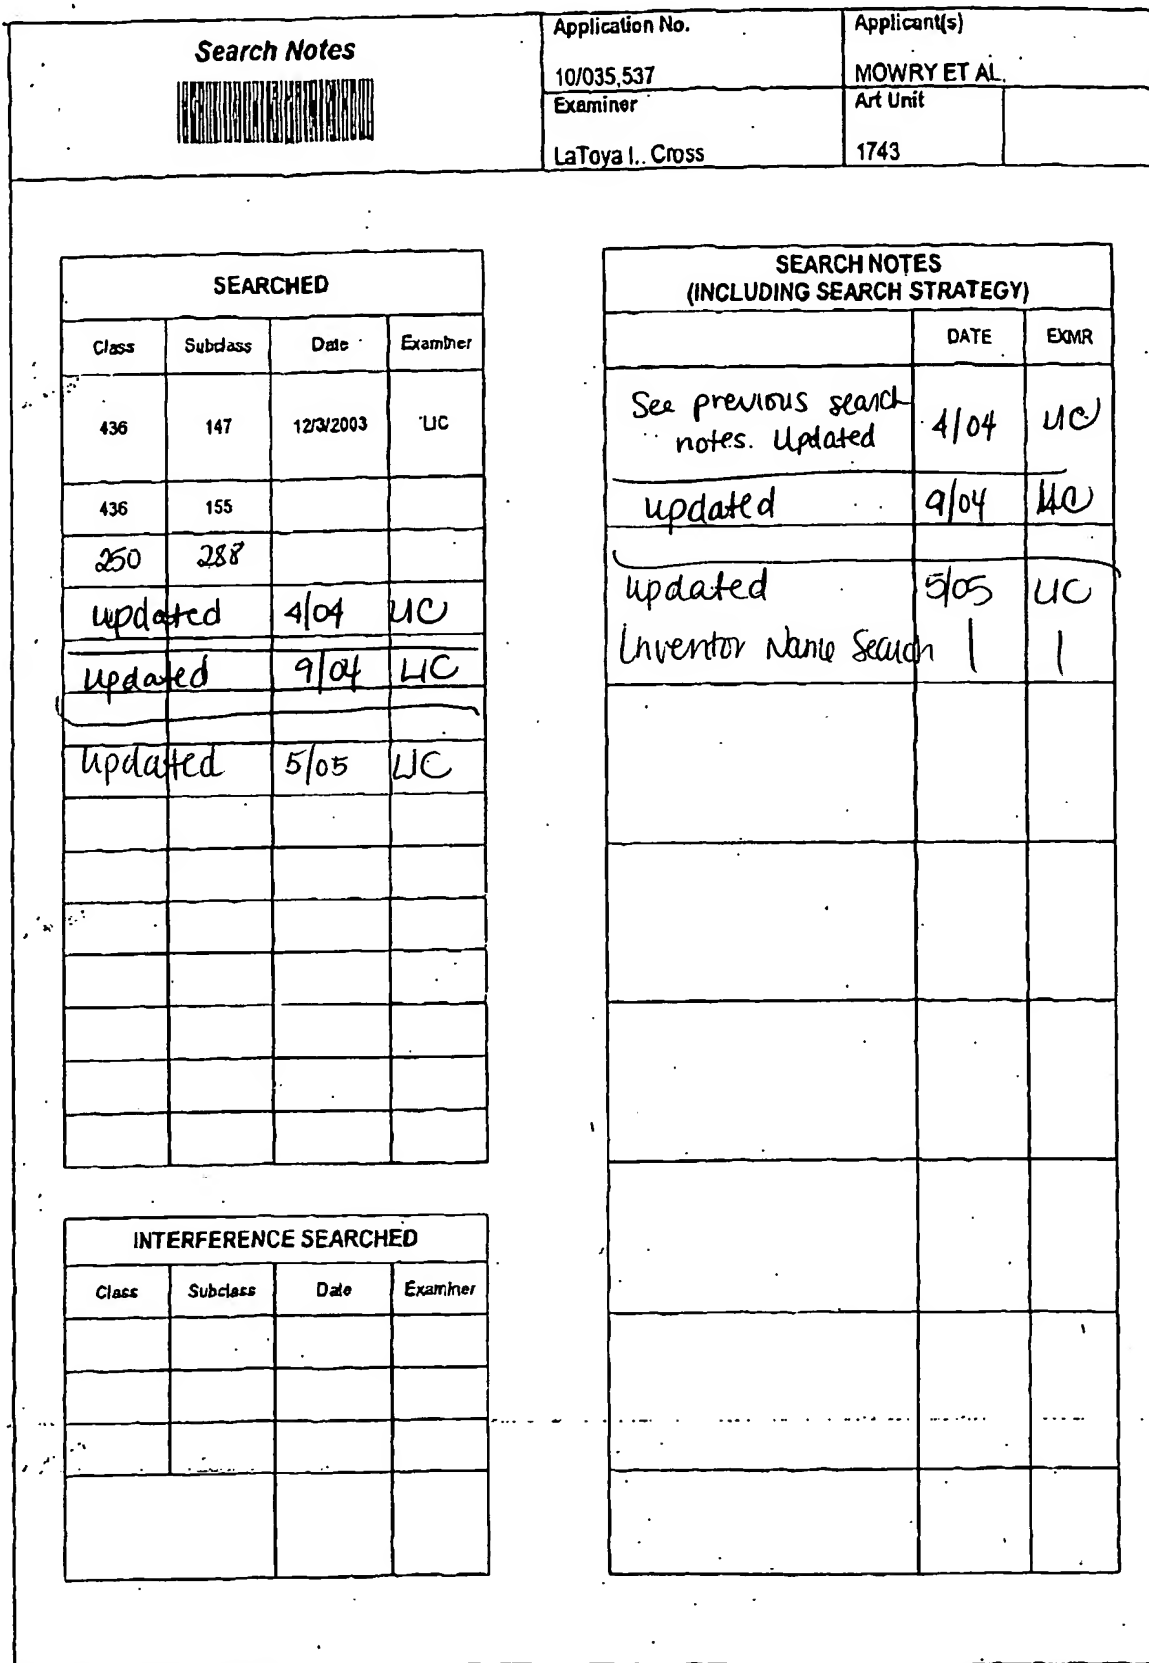 Search Notes
Application No.
Applicant(s)
10/035,537
MOWRY ET AL.
Examiner
Art Unit
LaToya I.. Cross
1743
SEARCHED
Class Subclass Date Examiner
436 147 12/3/2003 LIC
436 155
250 288
updated 4/04 LIC
updated 9/04 LIC
updated 5/05 LIC
INTERFERENCE SEARCHED
Class Subclass Date Examiner
SEARCH NOTES
(INCLUDING SEARCH STRATEGY)
DATE EXMR
See previous search
notes. Updated 4/04 LIC
updated 9/04 LIC
updated 5/05 LIC
Inventor Name Search | |